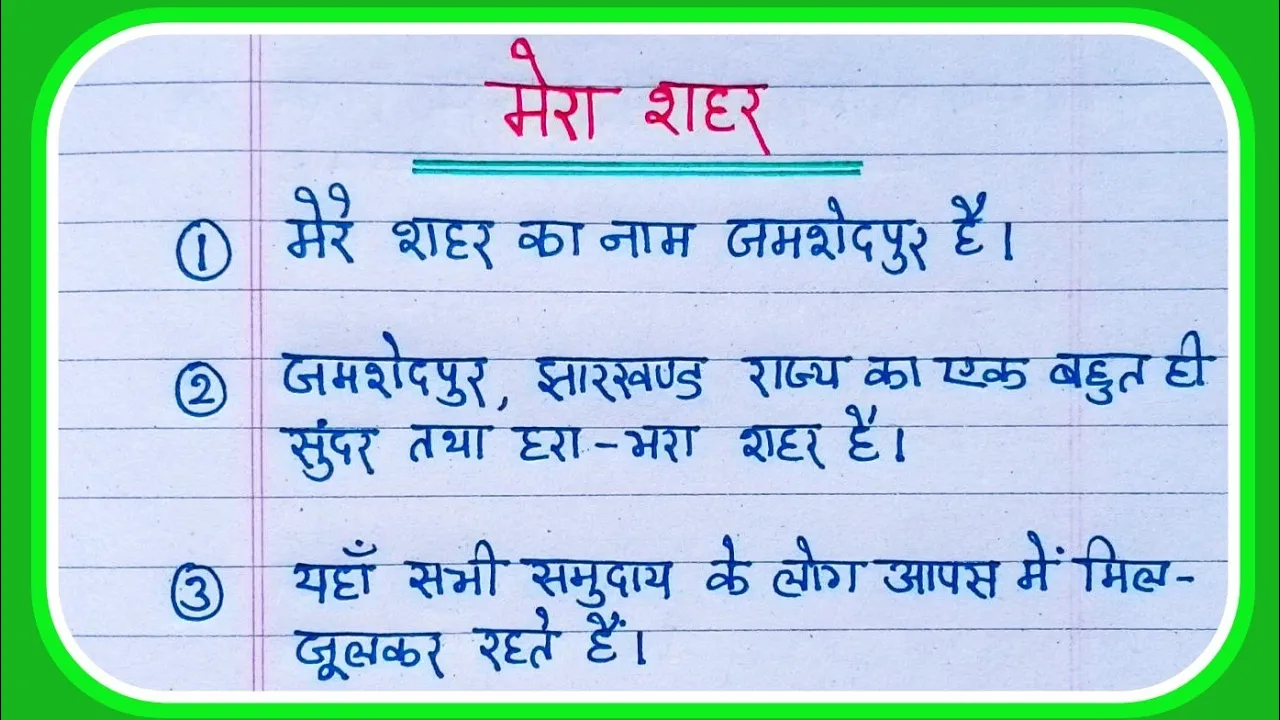 मेरा शहर
① मेरे शहर का नाम जमशेदपुर है।
② जमशेदपुर, झारखण्ड राज्य का एक बहुत ही
सुंदर तथा हरा-भरा शहर है।
③ यहाँ सभी समुदाय के लोग आपस में मिल-
जूलकर रहते हैं।